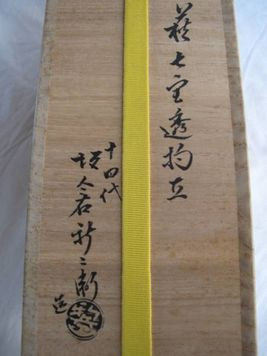 萩七宝透杓立
十四代
坂倉新兵衛造